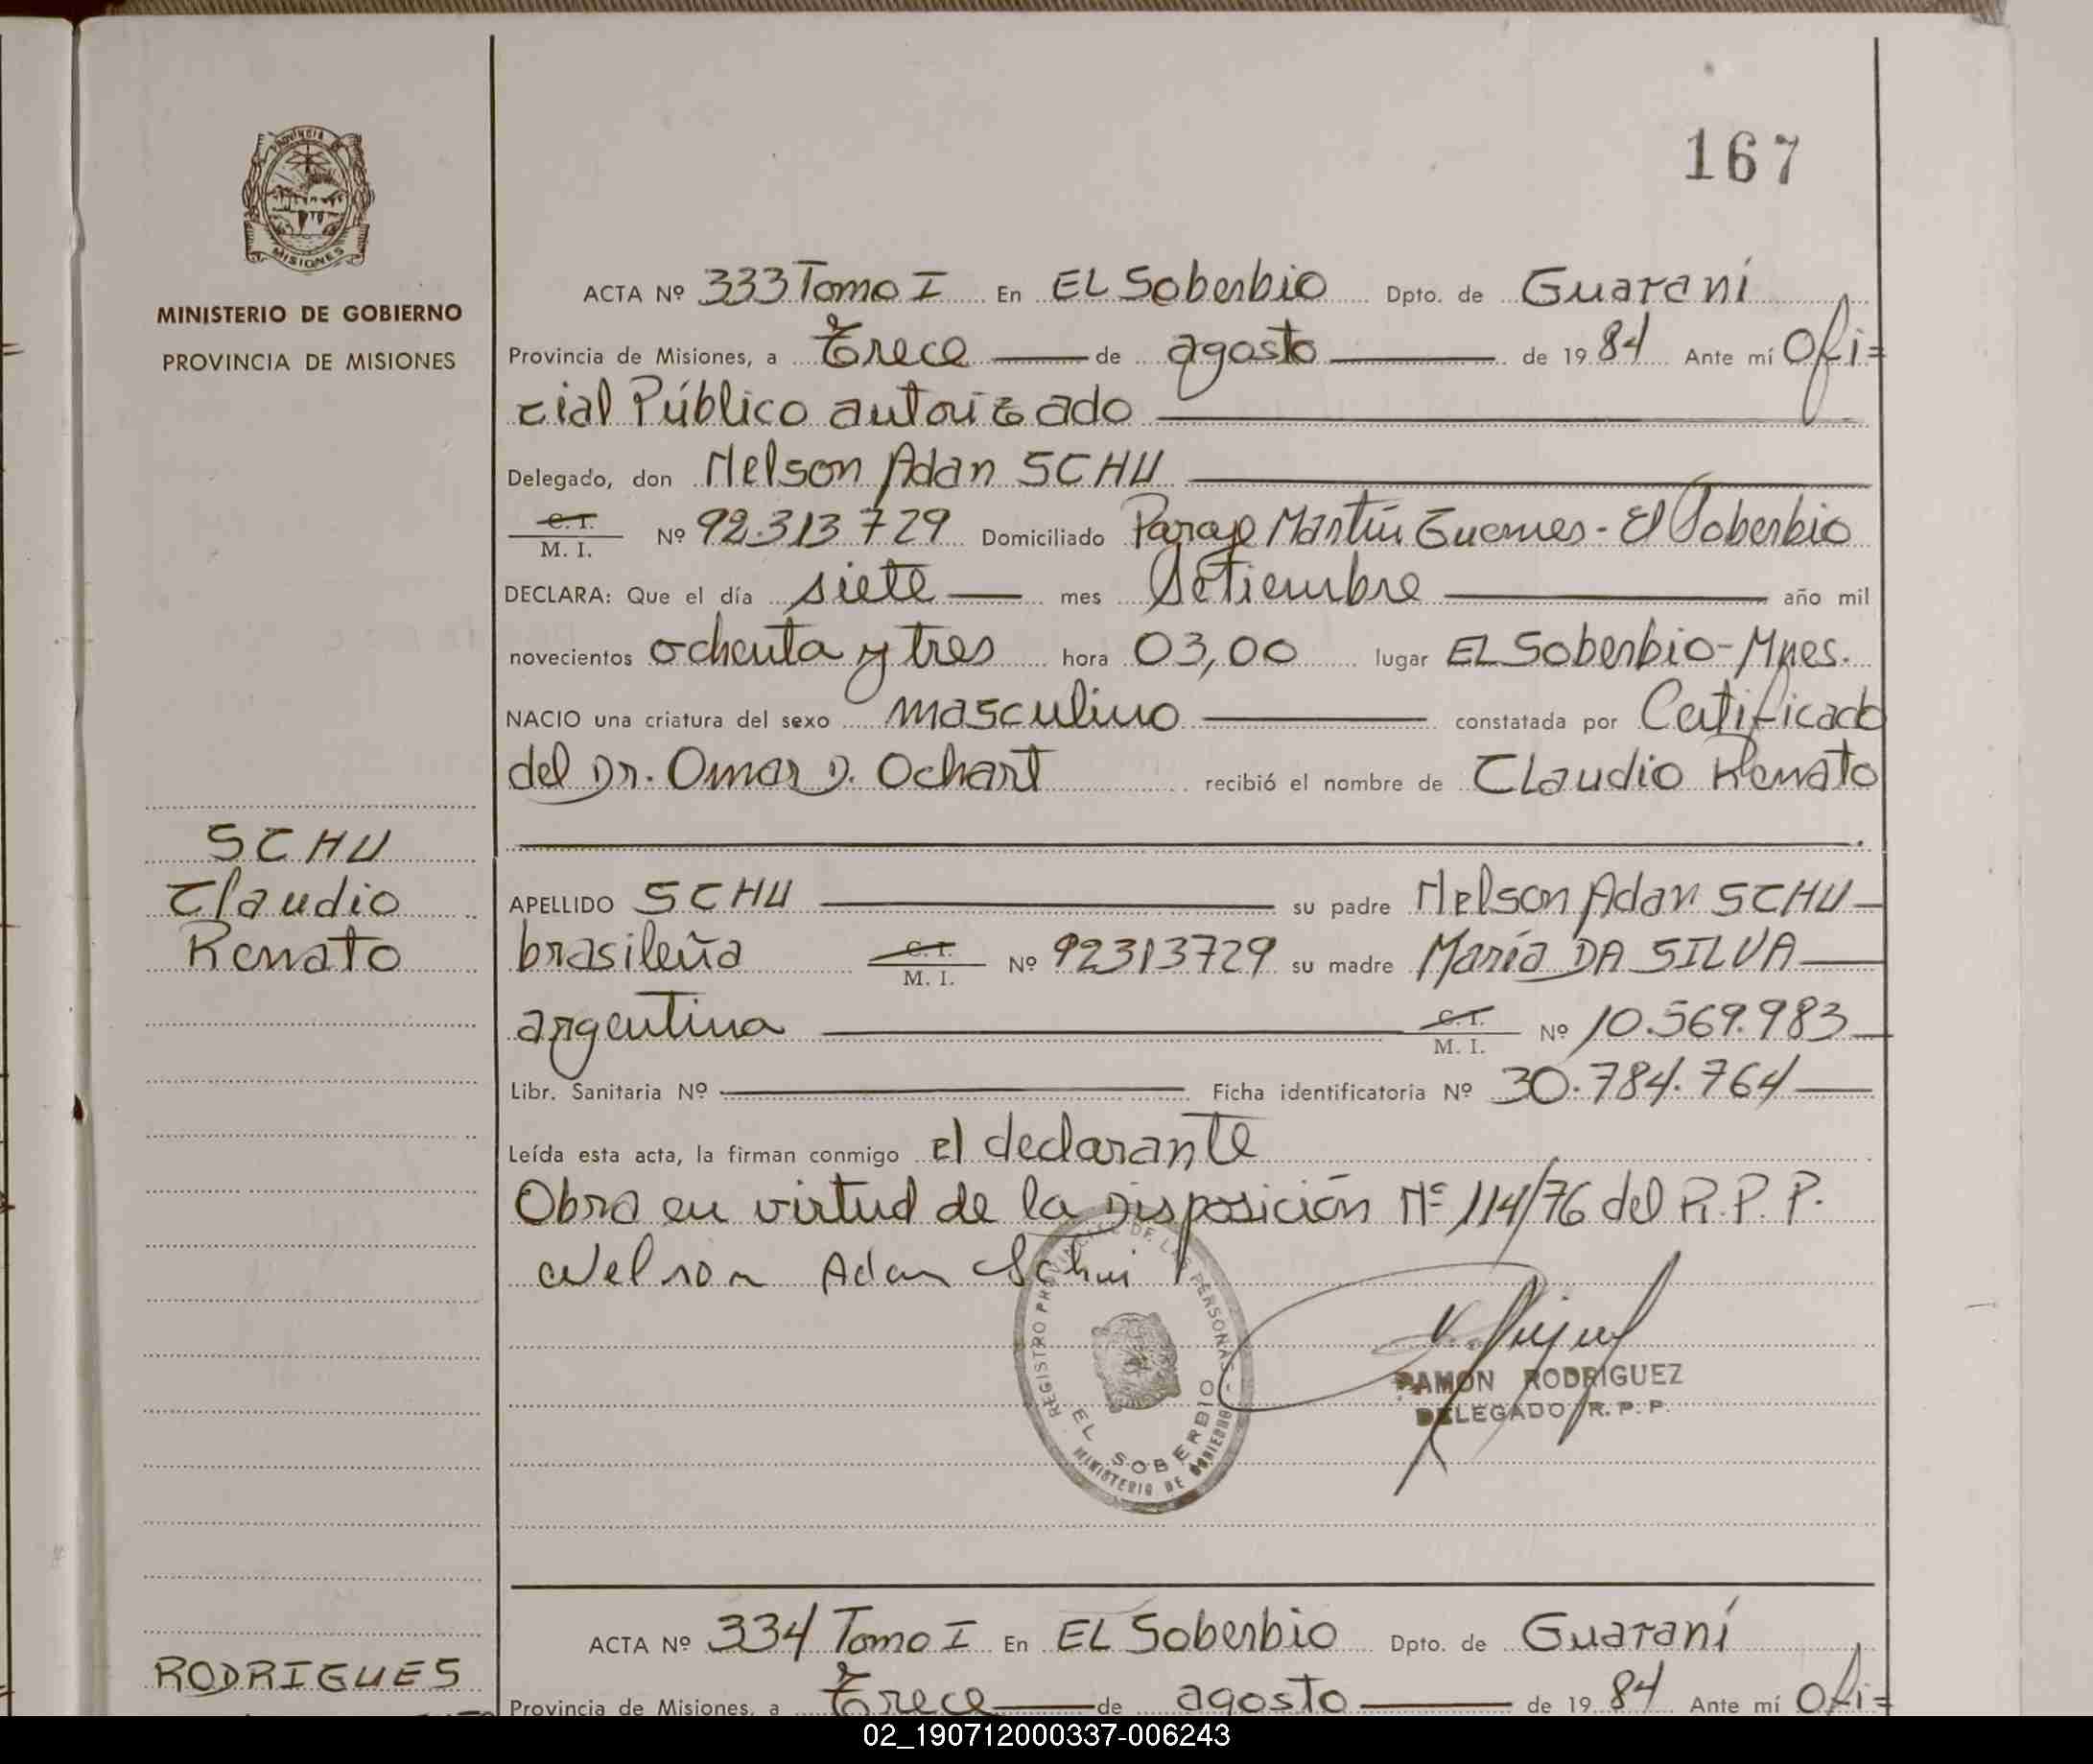 PROVINCIA
MISIONES
MINISTERIO DE GOBIERNO
PROVINCIA DE MISIONES
SCHU
Claudio
Renato
RODRIGUES
167
ACTA Nº 333 Tomo I En EL Soberbio Dpto. de Guaraní
Provincia de Misiones, a Trece de agosto de 19 84 Ante mí Ofi=
cial Público autorizado
Delegado, don Nelson Adan SCHU
C. I.
M. I. Nº 92.313729 Domiciliado Paraje Martín Guemes - El Soberbio
DECLARA: Que el día siete mes Setiembre año mil
novecientos ochenta y tres hora 03,00 lugar EL Soberbio - Mnes.
NACIO una criatura del sexo masculino constatada por Certificado
del Dr. Omar D. Ochart recibió el nombre de Claudio Renato
APELLIDO SCHU su padre Nelson Adan SCHU
brasileña C. I. M. I. Nº 92313729 su madre María DA SILVA
argentina C. I. M. I. Nº 10.569.983
Libr. Sanitaria Nº Ficha identificatoria Nº 30.784.764
Leída esta acta, la firman conmigo el declarante
Obra en virtud de la Disposición Nº 114/76 del R.P.P.
Nelson Adan Schu
REGISTRO PROVINCIAL DE LAS PERSONAS
EL SOBERBIO
MINISTERIO DE GOBIERNO
RAMON RODRIGUEZ
DELEGADO R.P.P.
ACTA Nº 334 Tomo I En EL Soberbio Dpto. de Guaraní
Provincia de Misiones, a Trece de agosto de 19 84 Ante mí Ofi=
02_190712000337-006243